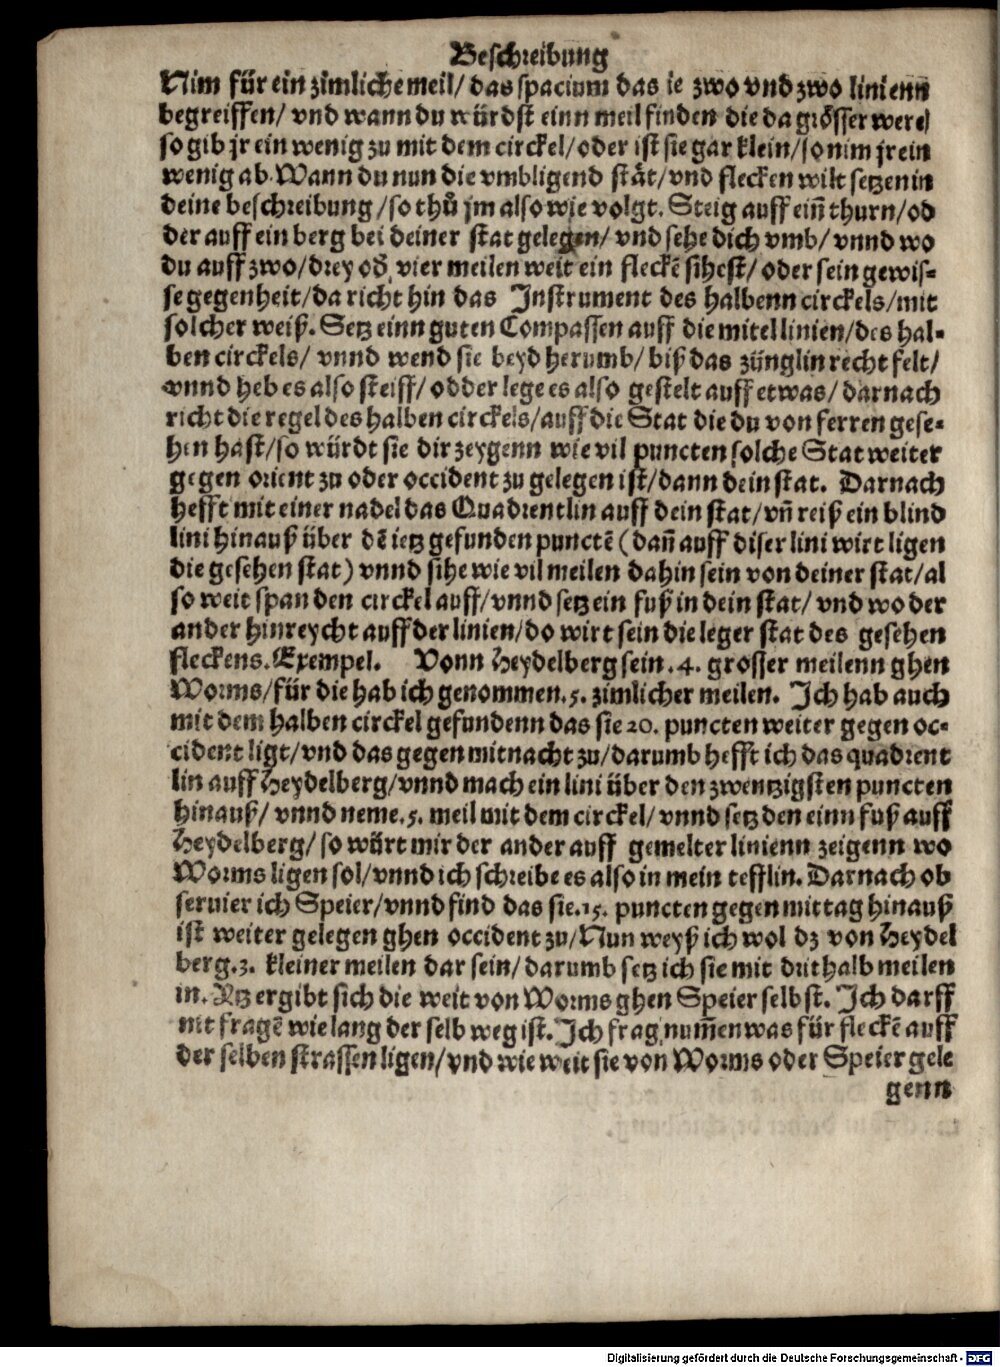 Beschreibung
Nim für ein zimliche meil/ das spacium das ie zwo vnd zwo linienn
begreiffen/ vnd wann du würdst einn meil finden die da grösser were/
so gib jr ein wenig zu mit dem circkel/ oder ist sie gar klein/ so nim jr ein
wenig ab. Wann du nun die vmbligend stät/ vnd flecken wilt setzen in
deine beschreibung/ so thů jm also wie volgt. Steig auff eiñ thurn/ od
der auff ein berg bei deiner stat gelegen/ vnd sehe dich vmb/ vnnd wo
du auff zwo/ drey od̕ vier meilen weit ein fleckē sihest/ oder sein gewis-
se gegenheit/ da richt hin das Instrument des halbenn circkels/ mit
solcher weiß. Setz einn guten Compassen auff die mitel linien/ des hal-
ben circkels/ vnnd wend sie beyd herumb/ biß das zünglin recht felt/
vnnd heb es also steiff/ odder lege es also gestelt auff etwas/ darnach
richt die regel des halben circkels/ auff die Stat die du von ferren gese-
hen hast/ so würdt sie dir zeygenn wie vil puncten solche Stat weiter
gegen orient zu oder occident zu gelegen ist/ dann dein stat. Darnach
hefft mit einer nadel das Quadrentlin auff dein stat/ vñ reiß ein blind
lini hinauß über dē ietz gefunden punctē (dañ auff diser lini wirt ligen
die gesehen stat) vnnd sihe wie vil meilen dahin sein von deiner stat/ al
so weit span den circkel auff/ vnnd setz ein fuß in dein stat/ vnd wo der
ander hinreycht auff der linien/ do wirt sein die leger stat des gesehen
fleckens. Exempel. Vonn Heydelberg sein .4. grosser meilenn ghen
Worms/ für die hab ich genommen .5. zimlicher meilen. Ich hab auch
mit dem halben circkel gefundenn das sie 20. puncten weiter gegen oc-
cident ligt/ vnd das gegen mitnacht zu/ darumb hefft ich das quadrent
lin auff Heydelberg/ vnnd mach ein lini über den zwentzigsten puncten
hinauß/ vnnd neme .5. meil mit dem circkel/ vnnd setz den einn fuß auff
Heydelberg/ so würt mir der ander auff gemelter linienn zeigenn wo
Worms ligen sol/ vnnd ich schreibe es also in mein tefflin. Darnach ob
seruier ich Speier/ vnnd find das sie .15. puncten gegen mittag hinauß
ist weiter gelegen ghen occident zu/ Nun weyß ich wol dz von Heydel
berg .3. kleiner meilen dar sein/ darumb setz ich sie mit drithalb meilen
in. Ytz ergibt sich die weit von Worms ghen Speier selbst. Ich darff
nit fragē wie lang der selb weg ist. Ich frag num̄en was für fleckē auff
der selben strassen ligen/ vnd wie weit sie von Worms oder Speier gele
genn
Digitalisierung gefördert durch die Deutsche Forschungsgemeinschaft - DFG